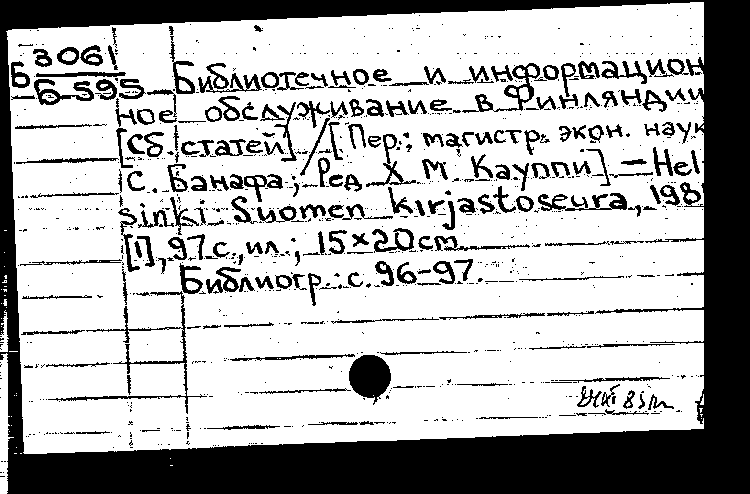 Б 3061
Б-595 Библиотечное и информацион
ное обслуживание в Финляндии
[Сб. статей] / [Пер.: магистр. экон. наук
С. Банафа; Ред. Х. М. Кауппи] — Hel
sinki: Suomen kirjastoseura, 198
[1], 97 с., ил.; 15×20 cm.
Библиогр.: с. 96-97.